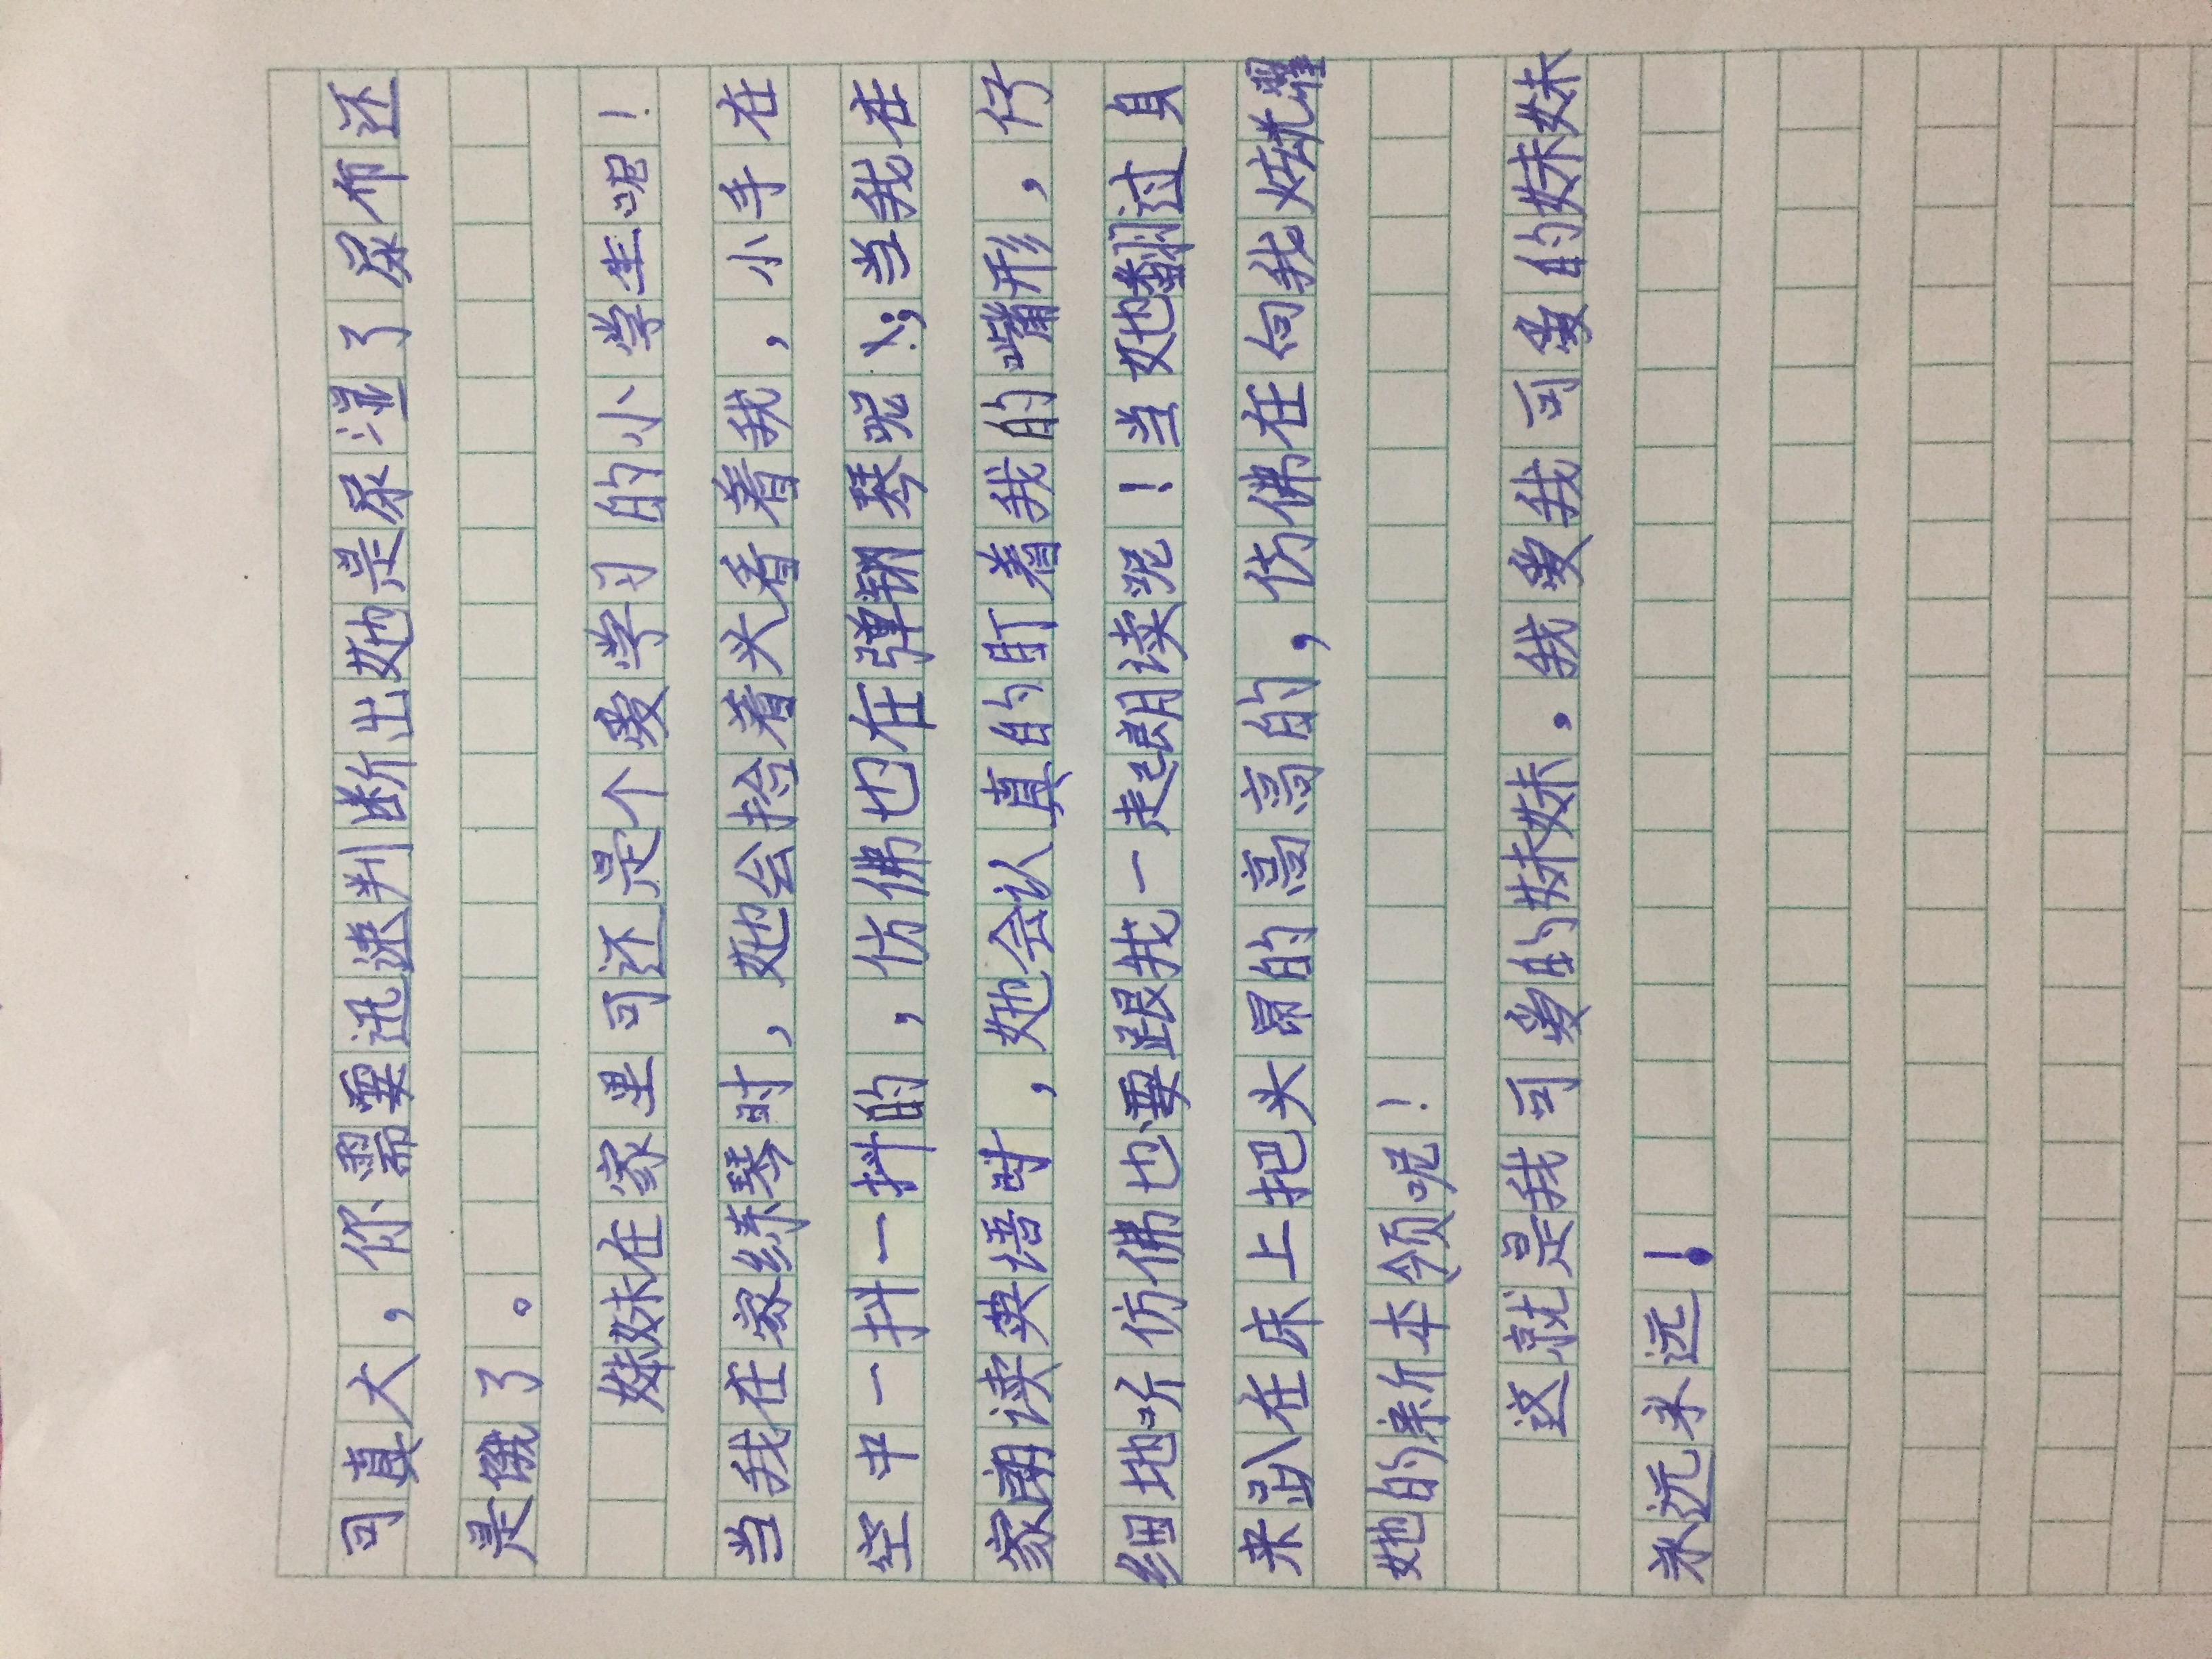 可真大，你需要迅速判断出她是尿湿了尿布还
是饿了。
妹妹在家里可还是个爱学习的小学生呢！
当我在家练琴时，她会抬着头看着我，小手在
空中一抖一抖的，仿佛也在弹钢琴呢！；当我在
家朗读英语时，她会认真的盯着我的嘴形，仔
细地听仿佛也要跟我一起朗读呢！当她翻过身
来趴在床上把头昂的高高的，仿佛在向我炫耀
她的新本领呢！
这就是我可爱的妹妹。我爱我可爱的妹妹
永远永远！